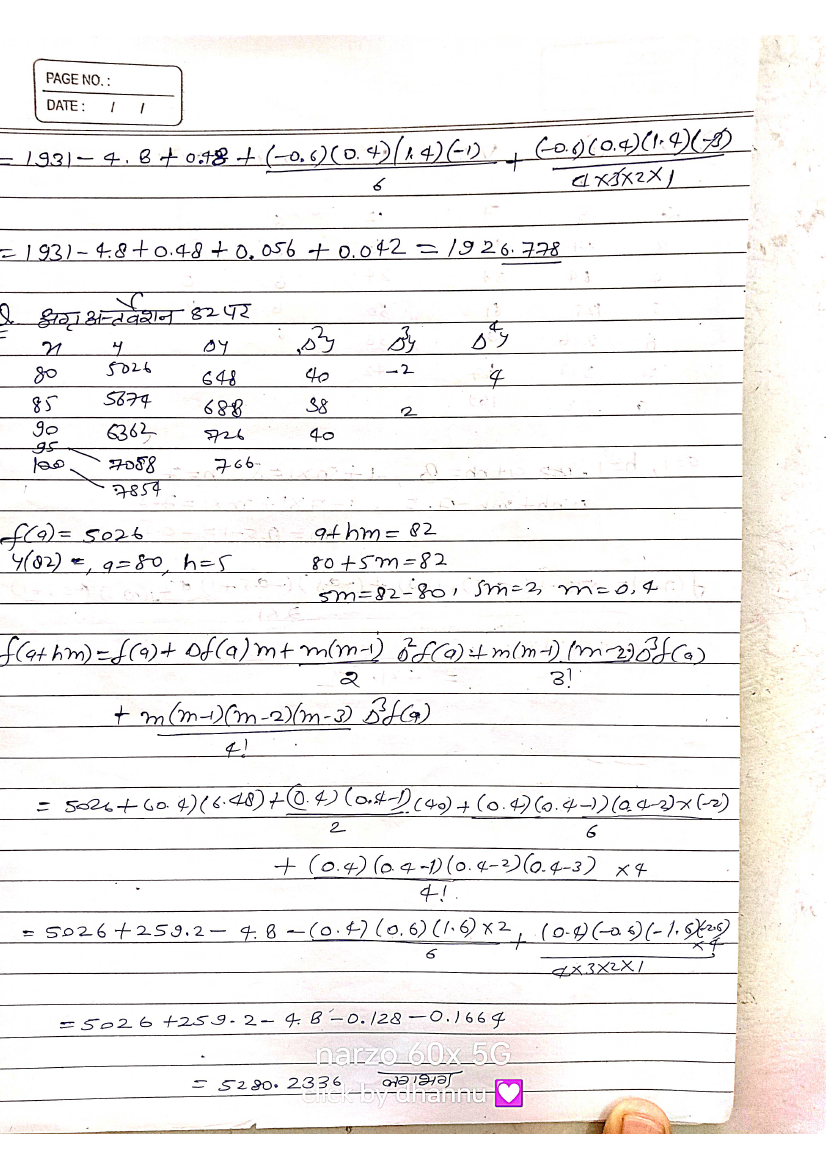 PAGE NO. :
DATE : / /
= 1931 - 4.8 + 0.48 + (-0.6)(0.4)(1.4)(-1)/6 + (-0.6)(0.4)(1.4)(-3)/4×3×2×1
= 1931 - 4.8 + 0.48 + 0.056 + 0.042 = 1926.778
अग्र अन्तर्वेशन 82 पर
x y Δy Δ²y Δ³y Δ⁴y
80 5026 648 40 -2 4
85 5674 688 38 2
90 6362 726 40
95
100 7088 766
7854
f(a) = 5026 a+hm = 82
y(82) =, a=80, h=5 80+5m=82
5m=82-80, 5m=2, m=0.4
f(a+hm) = f(a) + Δf(a)m + m(m-1)/2 Δ²f(a) + m(m-1)(m-2)/3! Δ³f(a)
+ m(m-1)(m-2)(m-3)/4! Δ³f(a)
= 5026 + (0.4)(6.48) + (0.4)(0.4-1)/2 (40) + (0.4)(0.4-1)(0.4-2)×(-2)/6
+ (0.4)(0.4-1)(0.4-2)(0.4-3)/4! ×4
= 5026 + 259.2 - 4.8 - (0.4)(0.6)(1.6)×2/6 + (0.4)(-0.6)(-1.6)(-2.6)×4/4×3×2×1
= 5026 + 259.2 - 4.8 - 0.128 - 0.1664
narzo 60x 5G
= 5280.2336 लगभग
click by dhannu